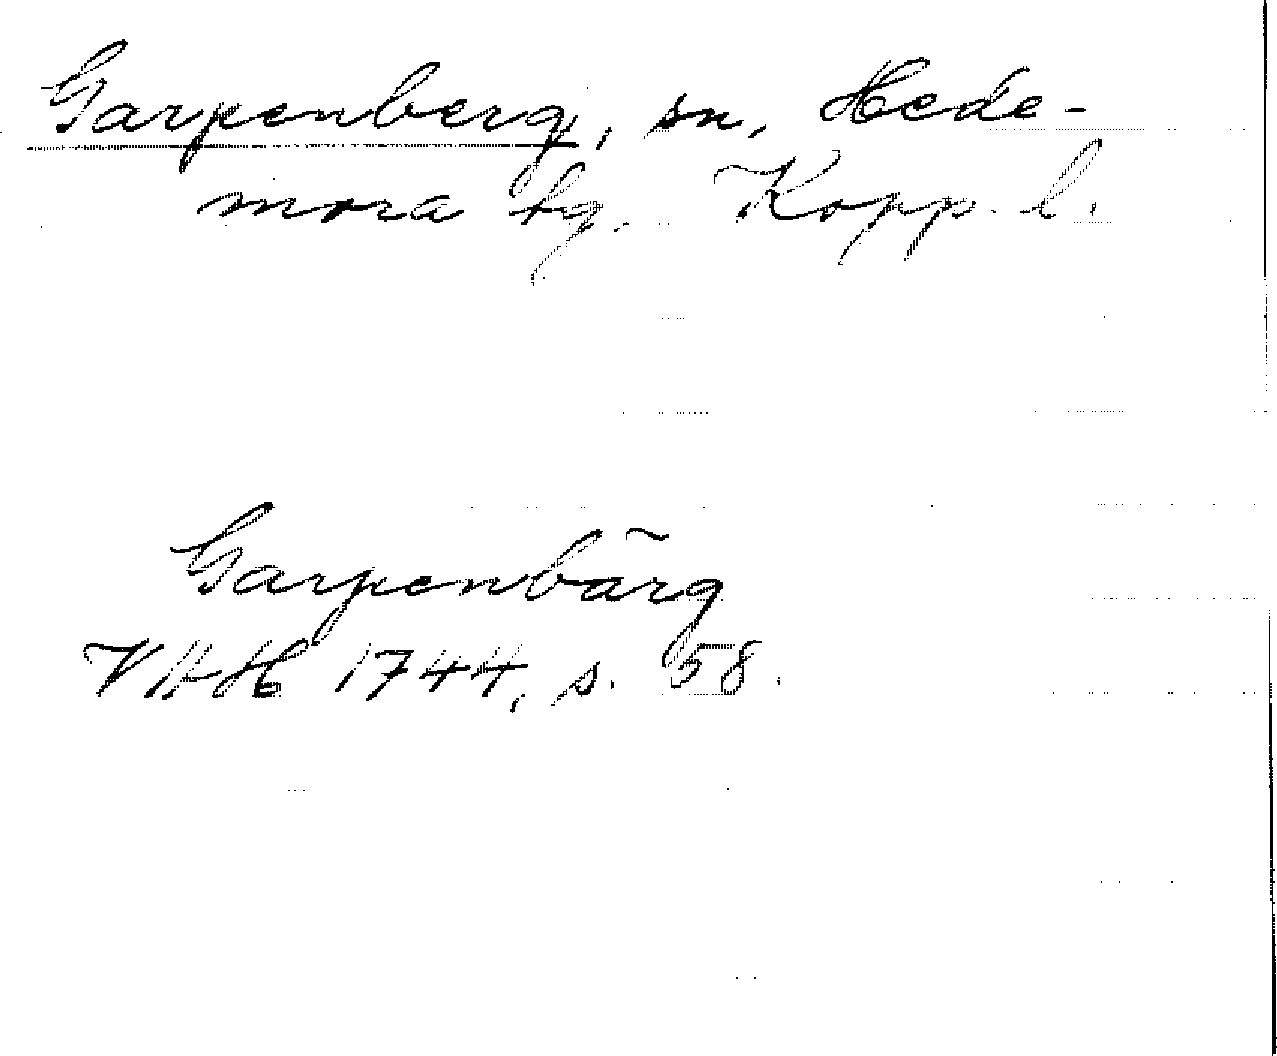 Garpenberg, sn, Hede-
mora tg. Kopp. l.
Garpenbärg
VAH 1744, s. 58.